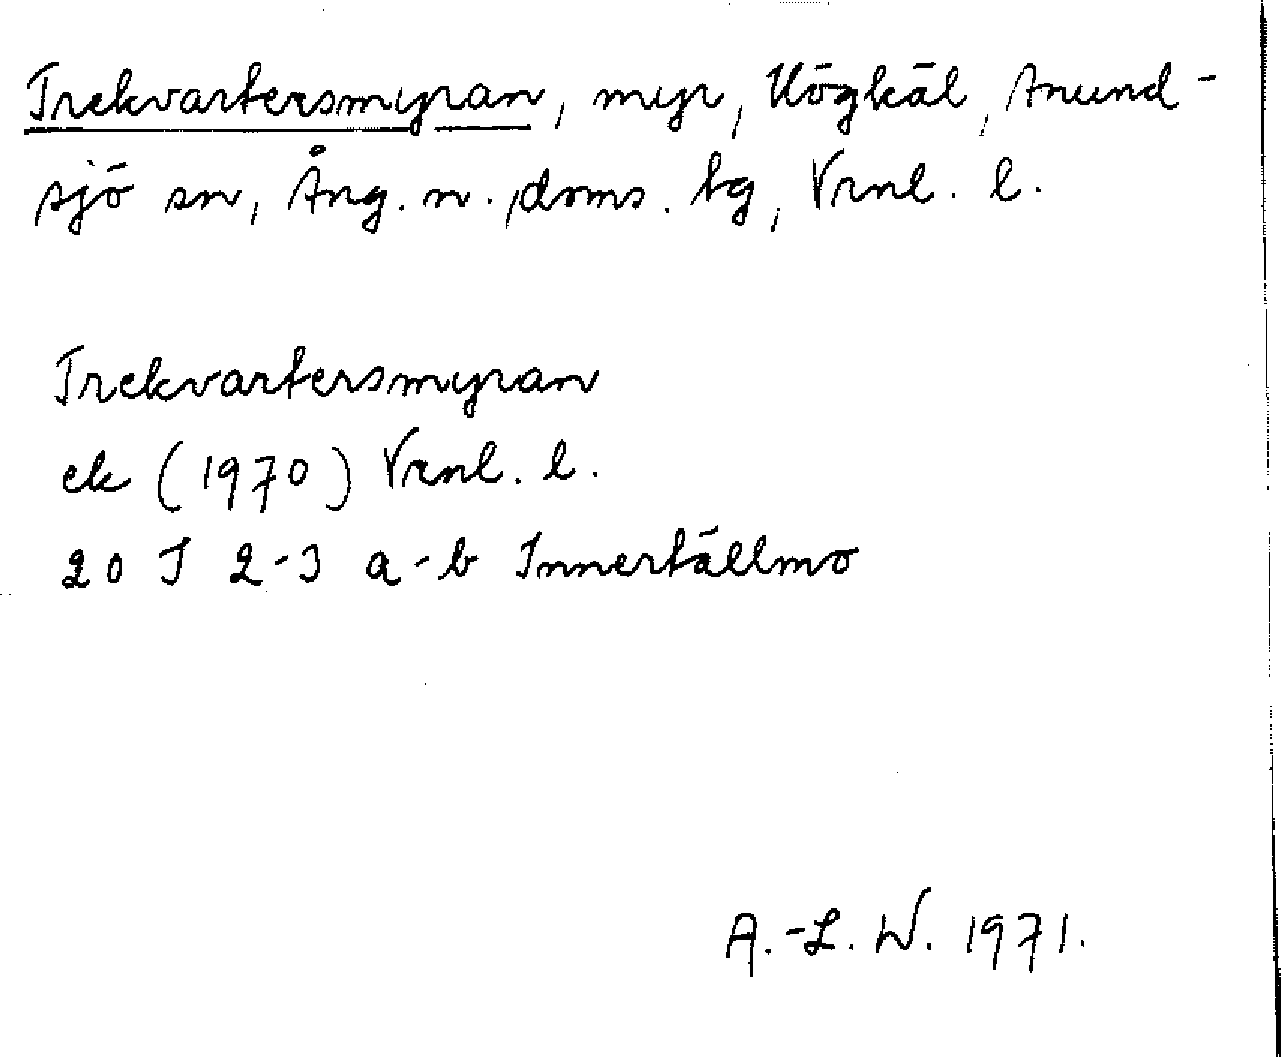 Trekvartersmyran, myr, Högkäl, Anund-
sjö sn, Ång. n. doms. tg, Vrnl. l.
Trekvartersmyran
ek (1970) Vrnl. l.
20 J 2-3 a-b Innertällmo
A.-L. W. 1971.